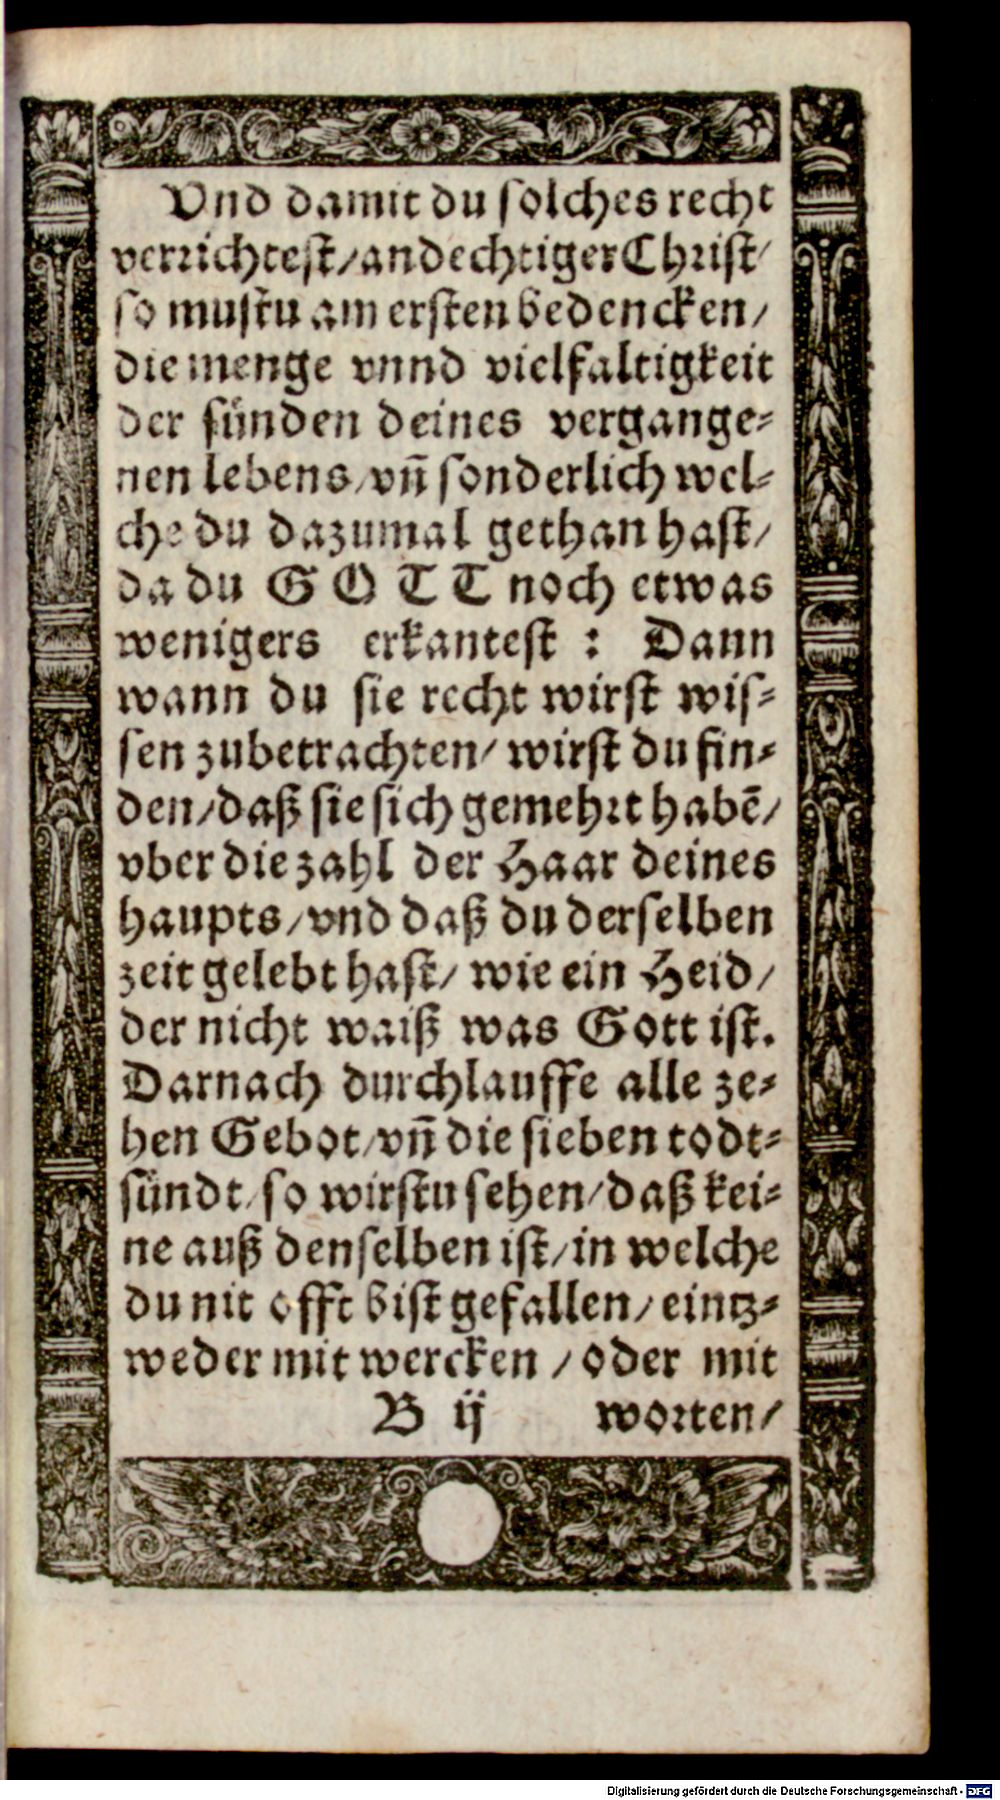 Vnd damit du solches recht
verrichtest/andechtiger Christ/
so mustu am ersten bedencken/
die menge vnnd vielfaltigkeit
der sünden deines vergange-
nen lebens/vn̄ sonderlich wel-
che du dazumal gethan hast/
da du GOTT noch etwas
wenigers erkantest : Dann
wann du sie recht wirst wis-
sen zubetrachten/ wirst du fin-
den/daß sie sich gemehrt habē/
vber die zahl der Haar deines
haupts/vnd daß du derselben
zeit gelebt hast/ wie ein Heid/
der nicht waiß was Gott ist.
Darnach durchlauffe alle ze-
hen Gebot/vn̄ die sieben todt-
sündt/so wirstu sehen/daß kei-
ne auß denselben ist/in welche
du nit offt bist gefallen/eintz-
weder mit wercken /oder mit
B ij worten/
Digitalisierung gefördert durch die Deutsche Forschungsgemeinschaft - DFG